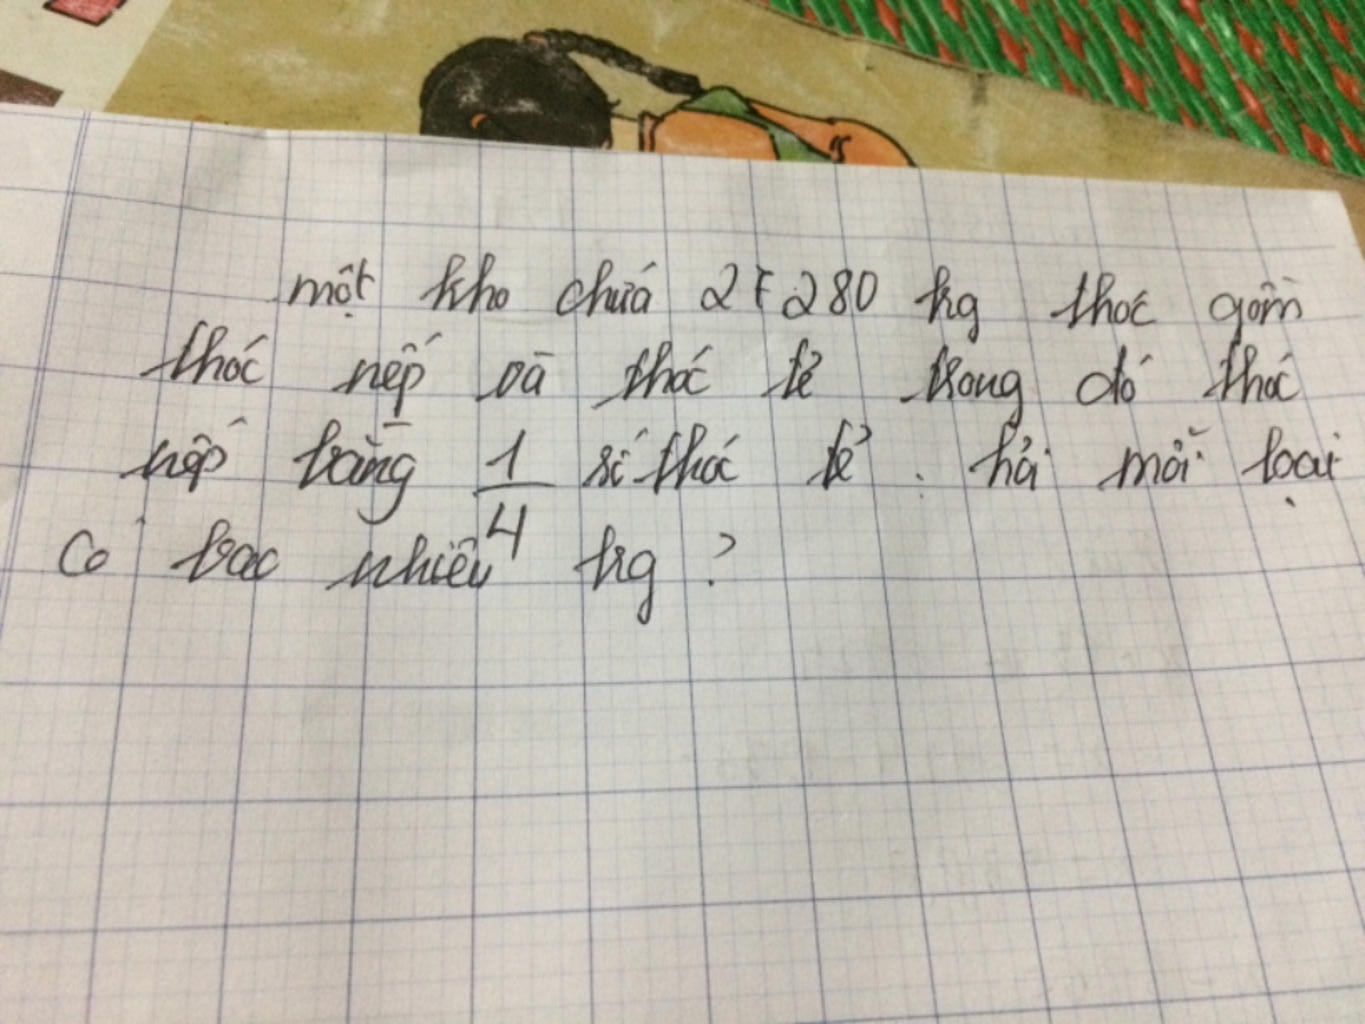 một kho chứa 27280 kg thóc gồm
thóc nếp và thóc tẻ trong đó thóc
nếp bằng 1/4 số thóc tẻ. hỏi mỗi loại
có bao nhiêu kg ?